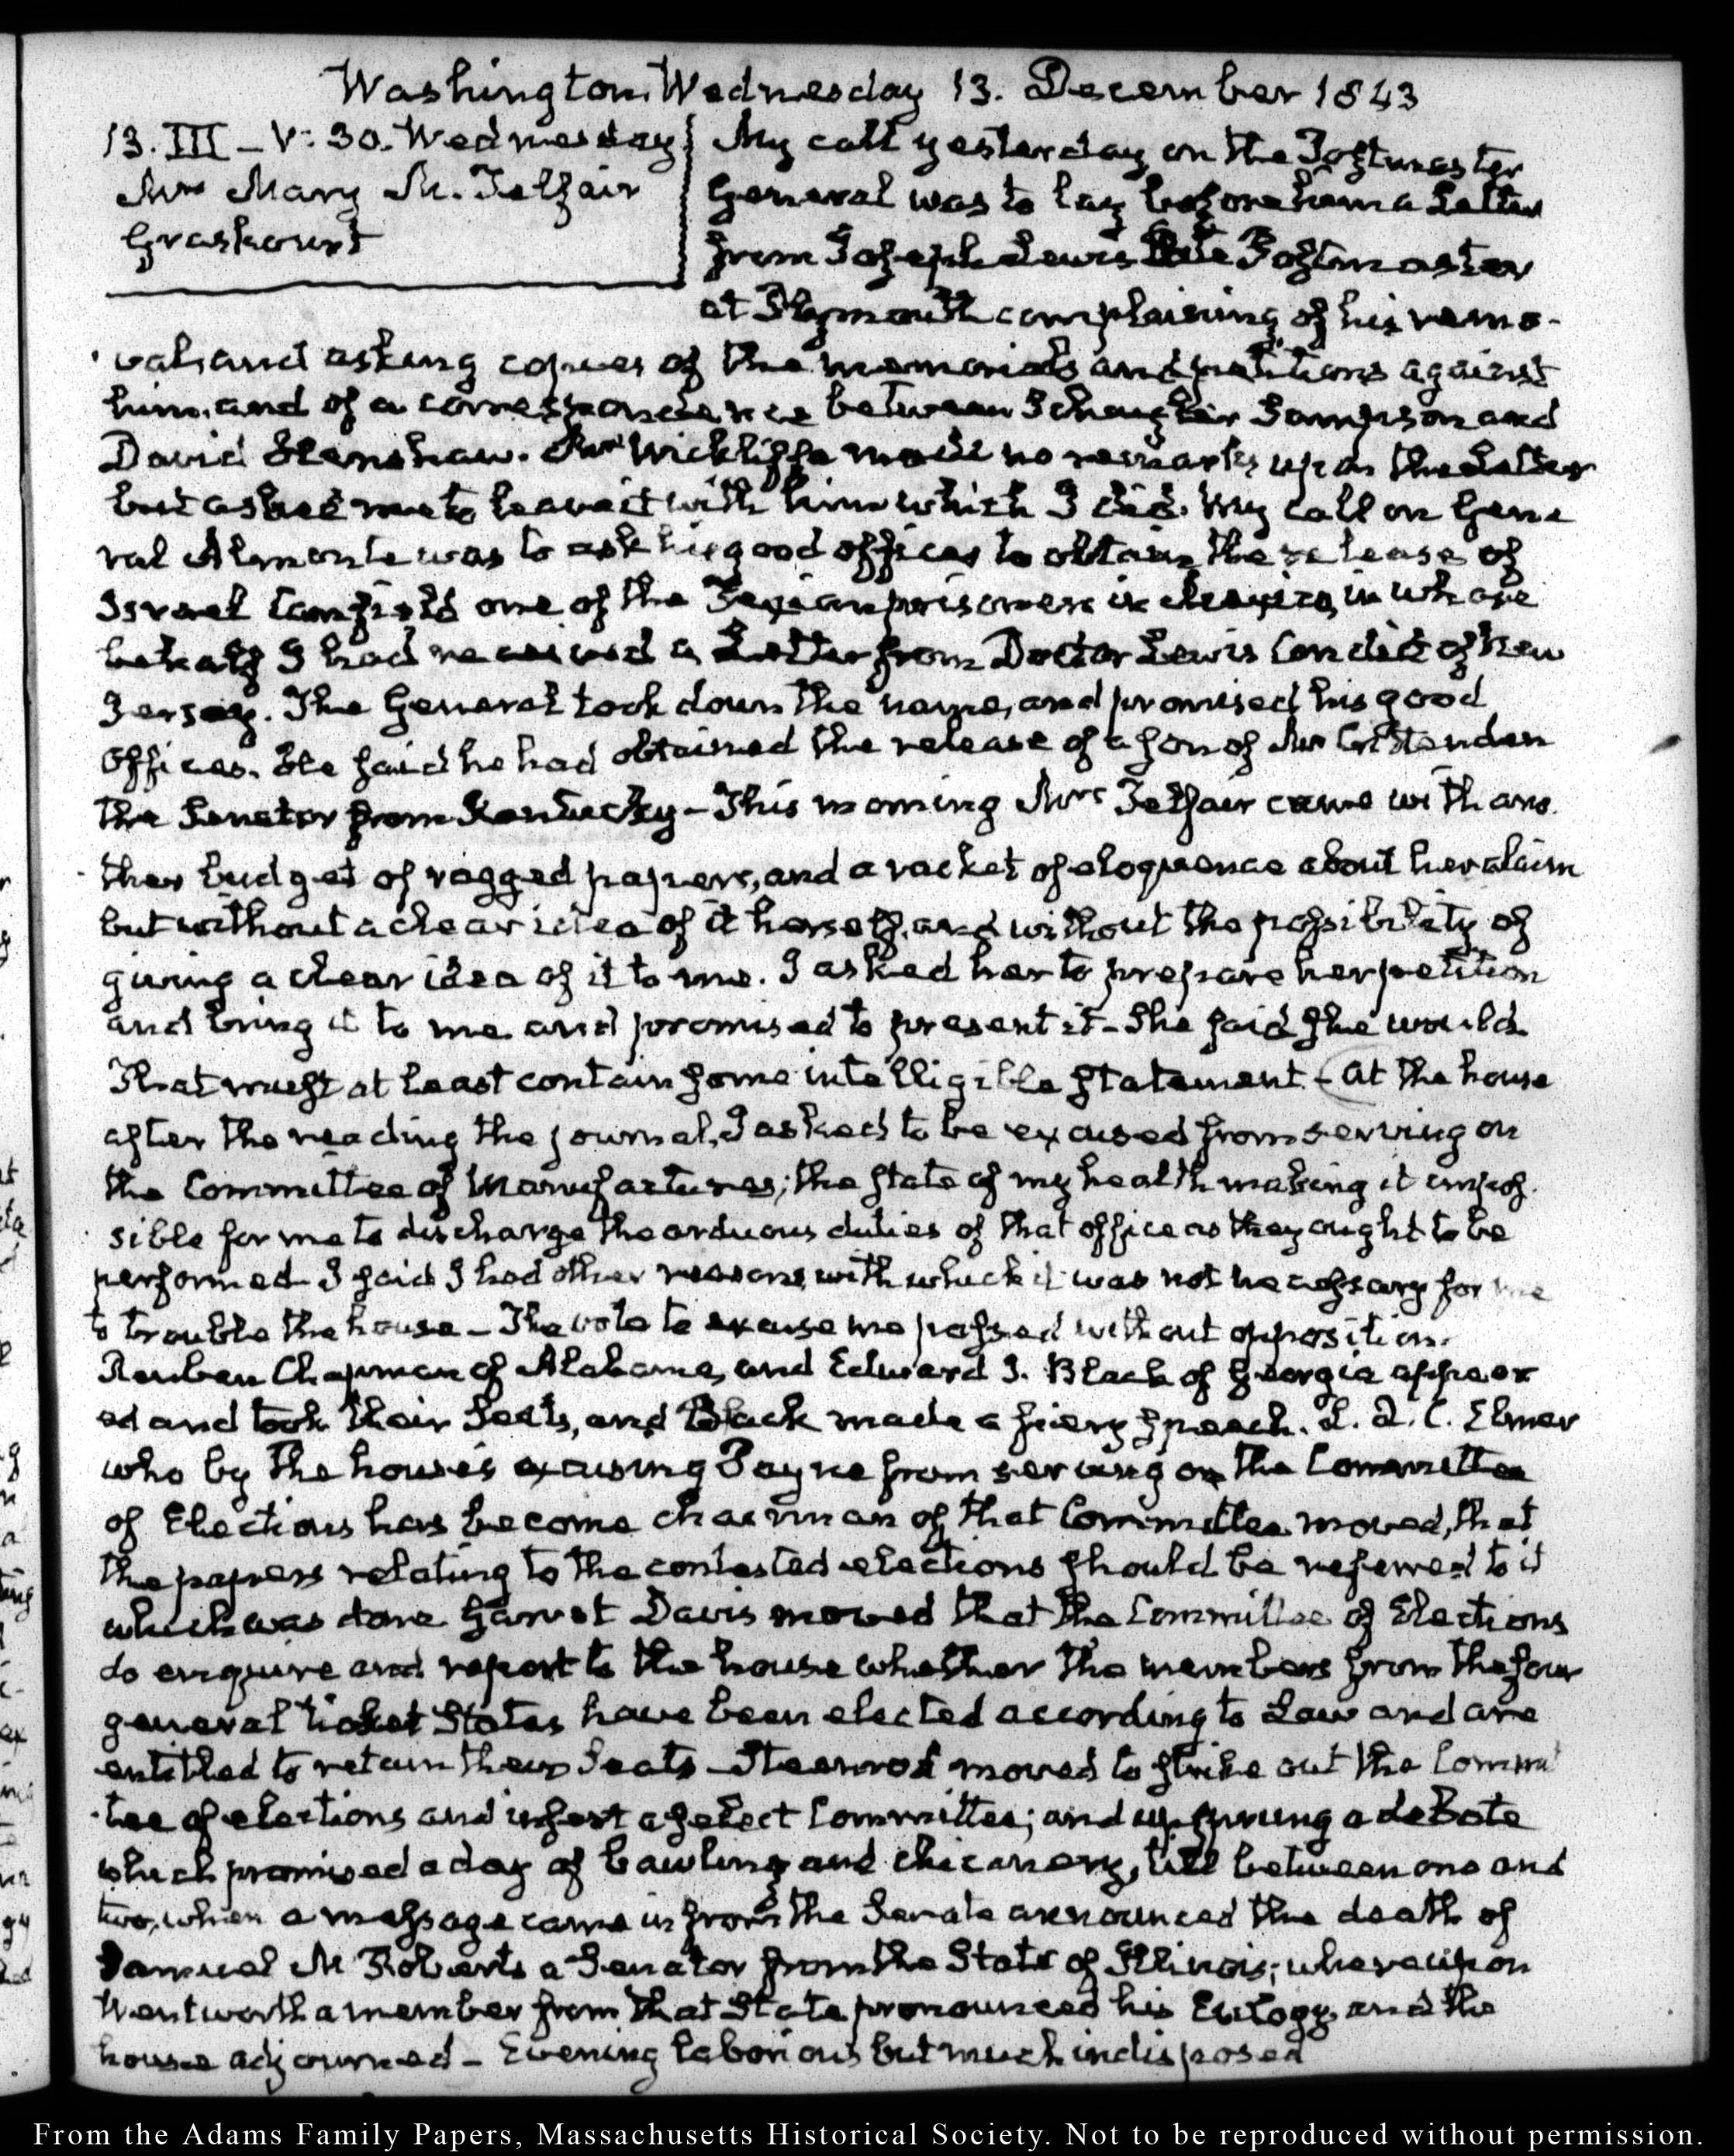 Washington Wednesday 13. December 1843
13. III – V: 30. Wednesday
Mrs Mary M. Telfair
My call yesterday on the Postmaster
General was to lay before him a Letter
from Joseph Lewis late Postmaster
at Plymouth complaining of his remo-
val, and asking copies of the memorials and petitions against
him, and of a correspondence between Schuyler Sampson and
David Henshaw. Mr Wickliffe made no remarks upon the Letter
but asked me to leave it with him which I did. My call on Gene
ral Almonte was to ask his good offices to obtain the release of
Israel Canfield one of the Texian prisoners in Mexico, in whose
behalf I had received a Letter from Doctor Lewis Condict of New
Jersey. The General took down the name, and promised his good
offices. He said he had obtained the release of a son of Mr Crittenden
the Senator from Kentucky – This morning Mrs Telfair came with ano.
ther budget of ragged papers, and a racket of eloquence about her claim
but without a clear idea of it herself, and without the possibility of
giving a clear idea of it to me. I asked her to prepare her petition
and bring it to me and promised to present it – She said she would
That must at least contain some intelligible statement – (At the house
after the reading the journal, I asked to be excused from serving on
the Committee of Manufactures; the state of my health making it impos.
sible for me to discharge the arduous duties of that office as they ought to be
performed – I said I had other reasons, with which it was not necessary for me
to trouble the house – The vote to excuse me passed without opposition.
Reuben Chapman of Alabama, and Edward J. Black of Georgia appear
ed and took their Seats, and Black made a fiery speech. L. Q. C. Elmer
who by the house's excusing Payne from serving on the Committee
of Elections has become chairman of that Committee moved, that
the papers relating to the contested elections should be referred to it
which was done Garret Davis moved that the Committee of Elections
do enquire and report to the house whether the members from the four
general ticket States have been elected according to Law and are
entitled to retain their Seats – Steenrod moved to strike out the Commit
tee of elections and insert a select Committee; and up sprung a debate
which promised a day of bawling and chicanery, till between one and
two, when a message came in from the Senate announced the death of
Samuel M Roberts a Senator from the State of Illinois; whereupon
Wentworth a member from that State pronounced his Eulogy, and the
house adjourned – Evening laborious but much indisposed
From the Adams Family Papers, Massachusetts Historical Society. Not to be reproduced without permission.